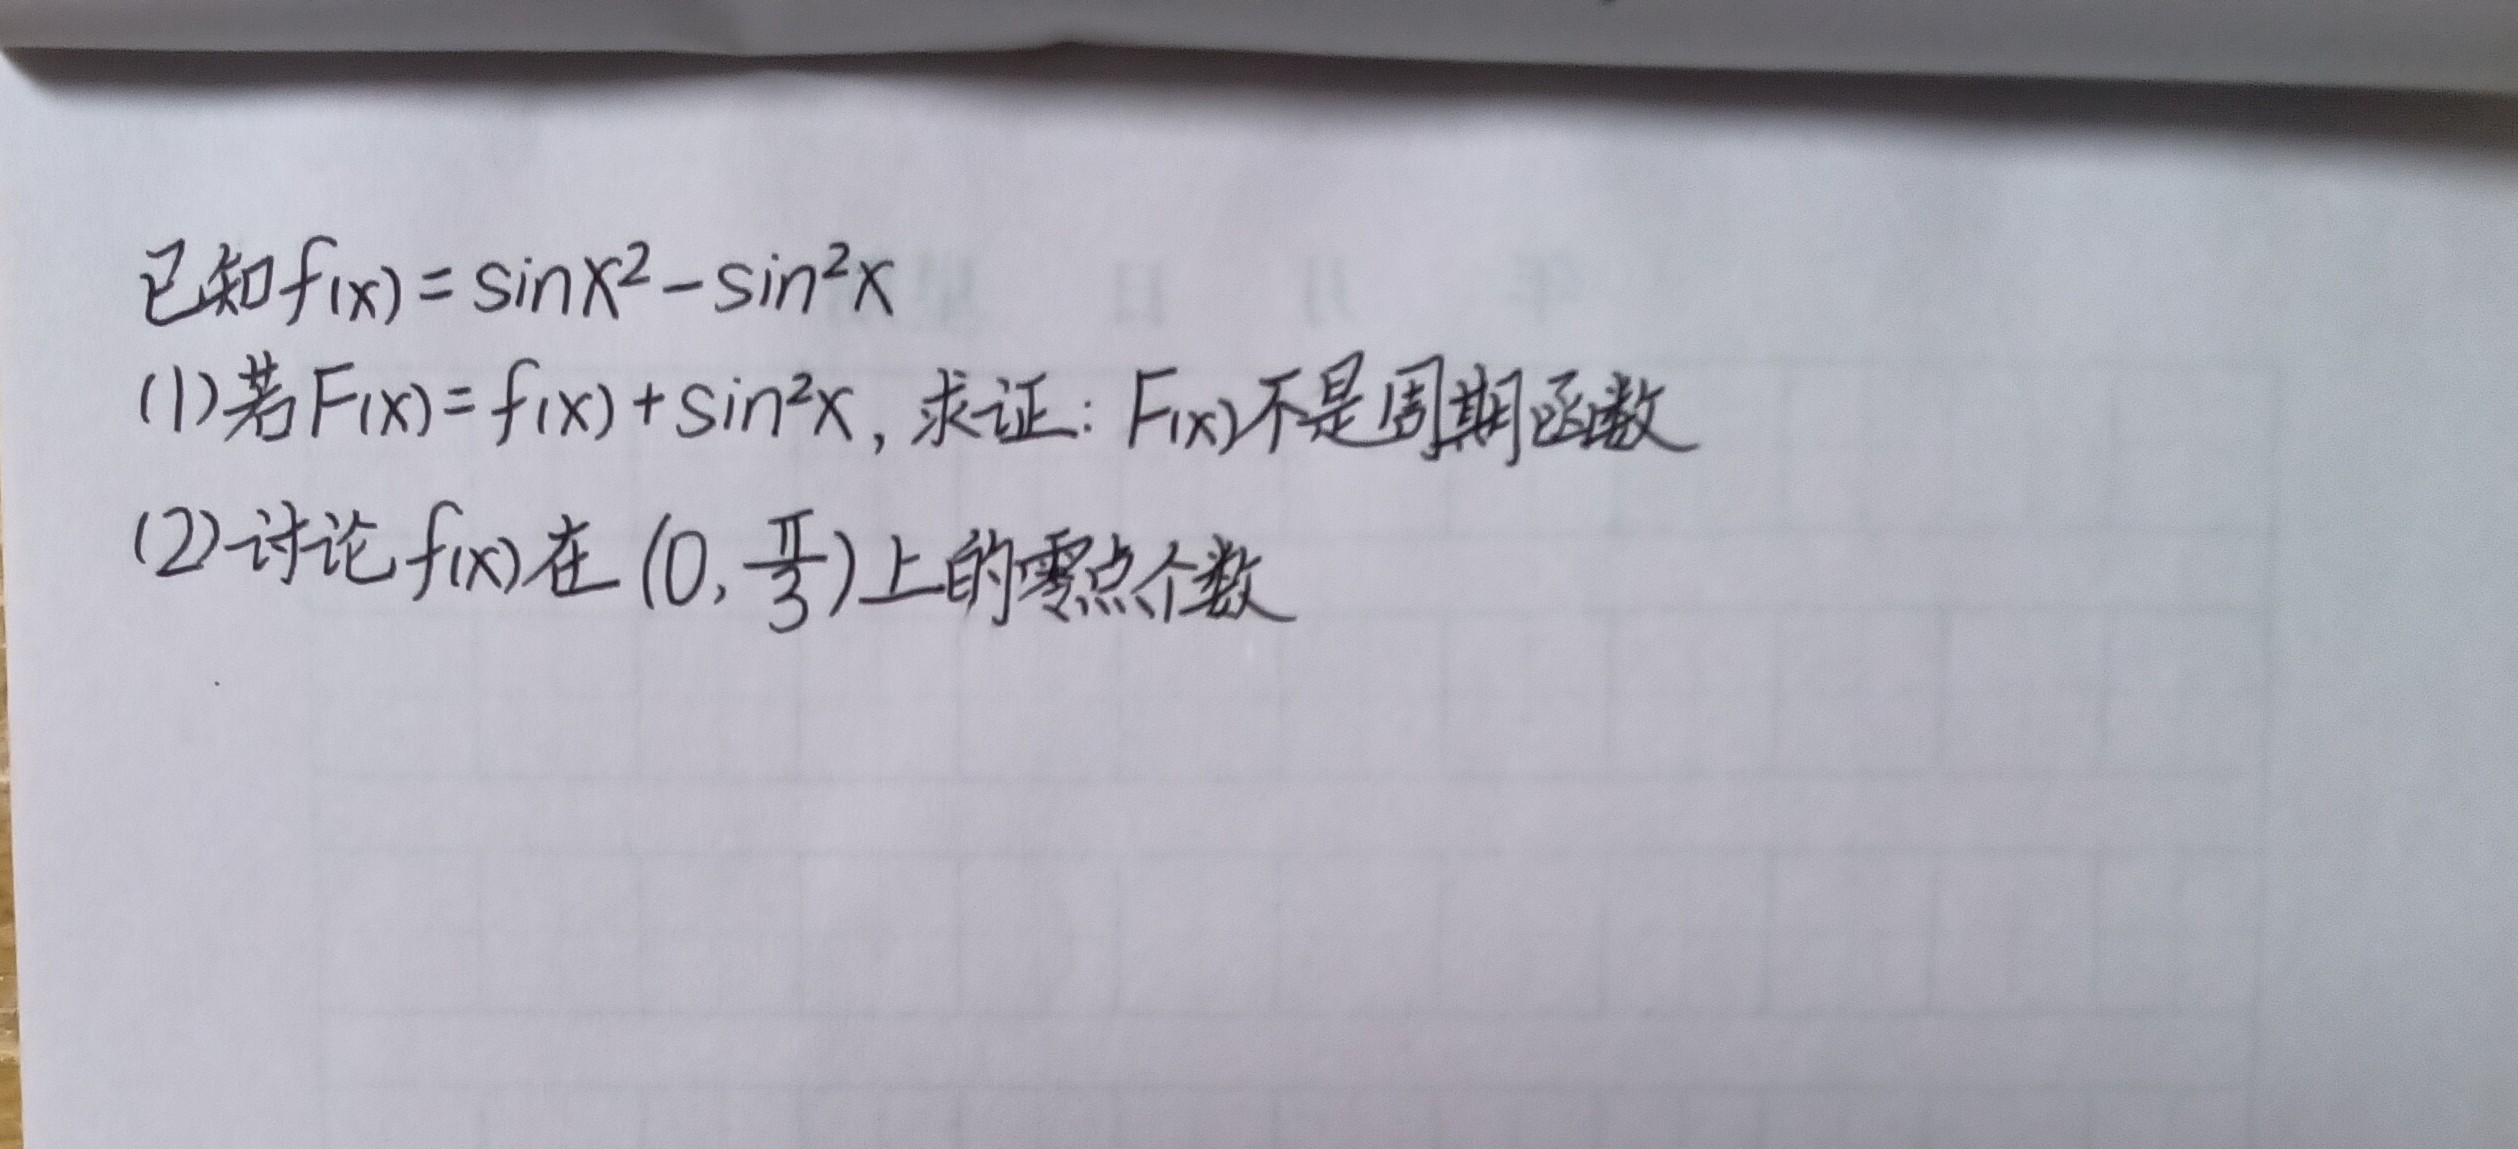 已知f(x)=sinx²-sin²x
(1)若F(x)=f(x)+sin²x,求证:F(x)不是周期函数
(2)讨论f(x)在(0,π/3)上的零点个数